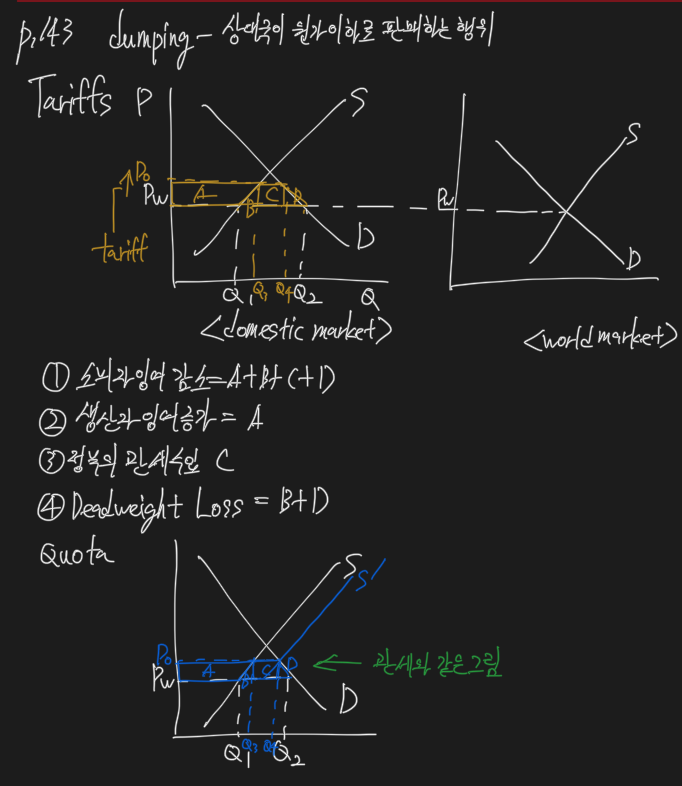 p.143 dumping - 상대국이 원가이하로 판매하는 행위
Tariffs P S
P₀ A B C D
Pw
tariff
D
Q₁ Q₃ Q₄ Q₂ Q
<domestic market>
S
Pw
D
<world market>
① 소비자잉여 감소=A+B+C+D
② 생산자잉여증가= A
③ 정부의 관세수입 C
④ Deadweight Loss = B+D
Quota S S'
P₀ A B C D ← 관세와 같은그림
Pw
D
Q₁ Q₃ Q₂